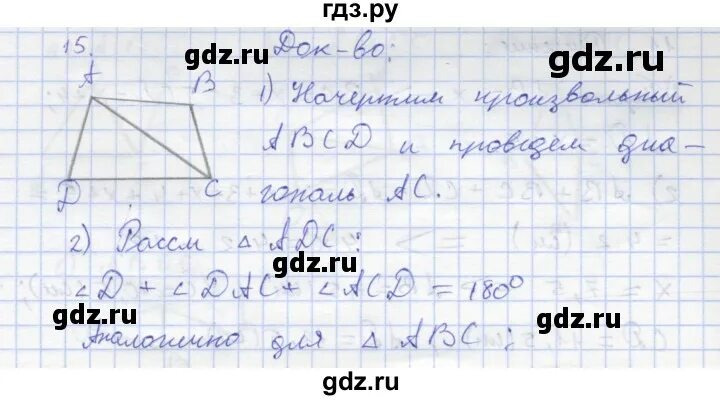 гдз.ру
15. Док-во:
A
B
1) Начертим произвольный
ABCD и проведем диа-
D
C
гональ AC.
2) Рассм △ ADC:
∠D + ∠DAC + ∠ACD = 180°
Аналогично для △ ABC;
gdz.ru
gdz.ru
gdz.ru
gdz.ru
gdz.ru
gdz.ru
gdz.ru